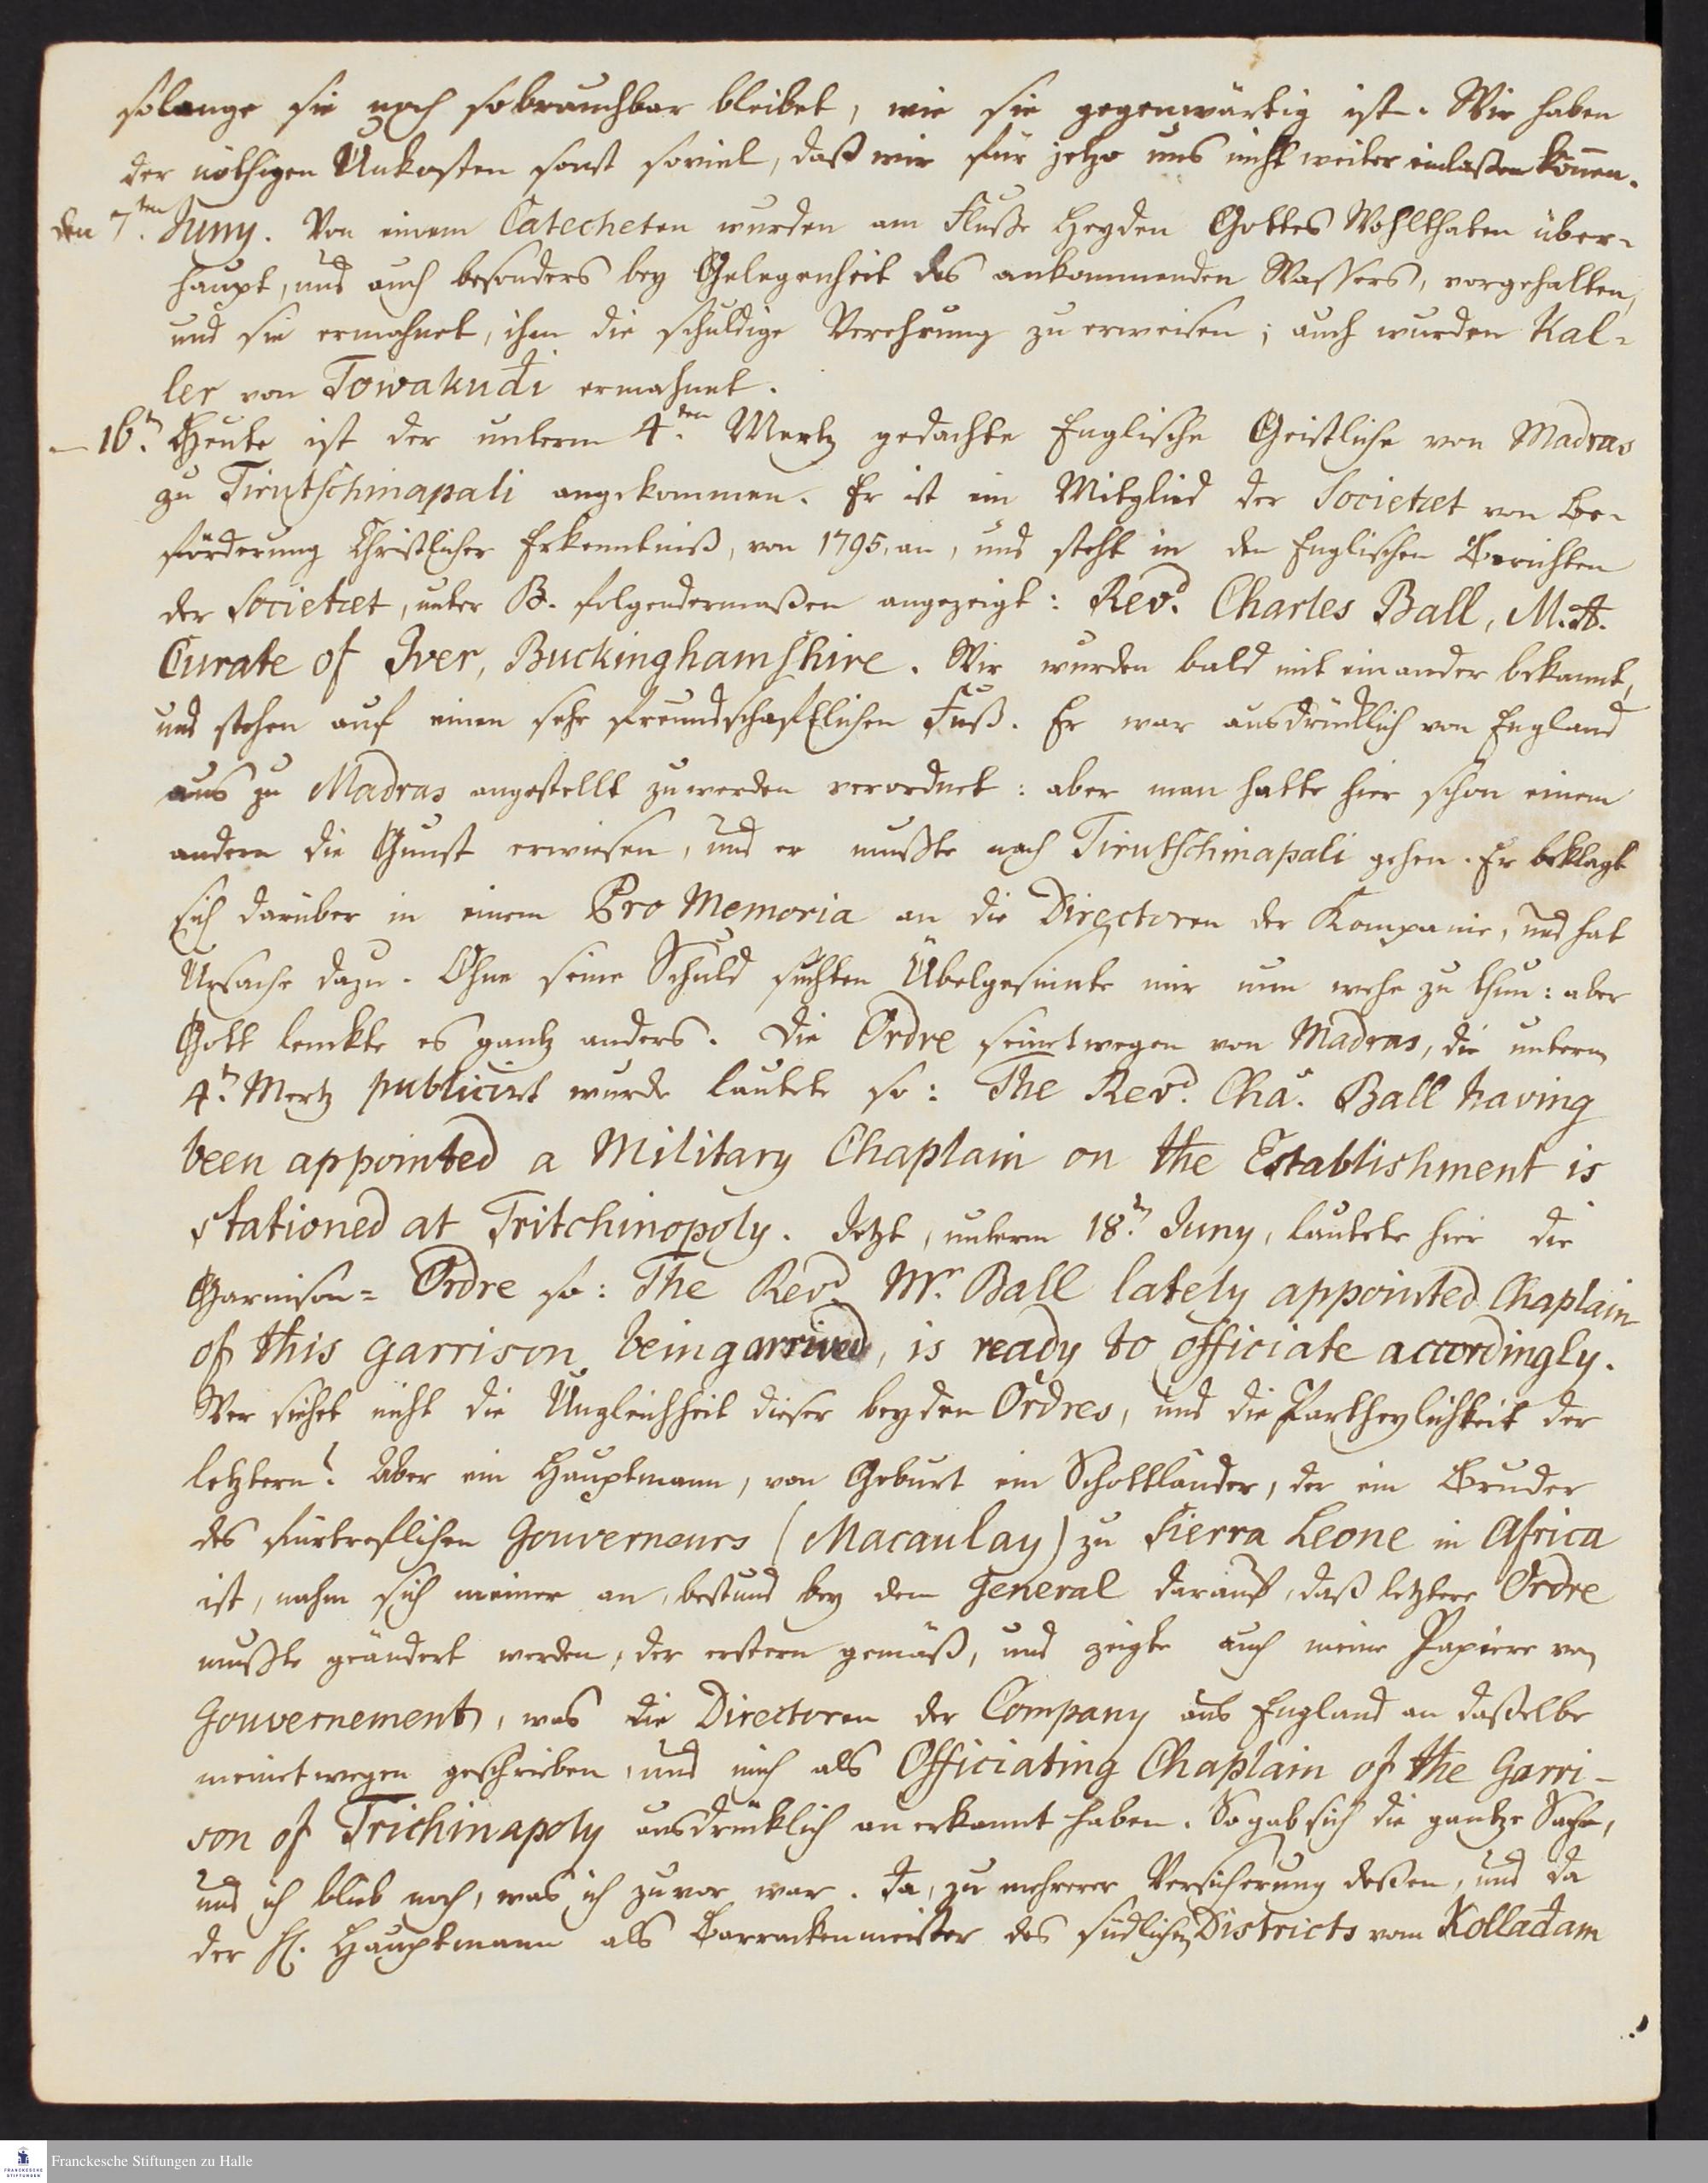 solange sie noch so brauchbar bleibet, wie sie gegenwärtig ist. Wir haben
der nöthigen Unkosten sonst soviel, daß wir für jetzo uns nicht weiter einlaßen köñen.
den 7.ten Juny. Von einem Catecheten wurden am Fluße Heyden Gottes Wohlthaten über-
haupt, und auch besonders bey Gelegenheit des ankommenden Wassers, vorgehalten,
und sie ermahnet, ihm die schuldige Verehrung zu erweisen; auch wurden Kal-
ler von Towakudi ermahnet.
— 16.t Heute ist der unterm 4.ten Mertz gedachte Englische Geistliche von Madras
zu Tirutschinapali angekommen. Er ist ein Mitglied der Societæt von Be-
förderung Christlicher Erkenntniß, von 1795, an, und steht in den Englischen Berichten
der Societæt, unter B. folgendermaßen angezeigt: Rev.d Charles Ball, M. A.
Curate of Iver, Buckinghamshire. Wir wurden bald mit einander bekannt,
und stehen auf einen sehr freundschaftlichen Fuß. Er war ausdrücklich von England
aus zu Madras angestellt zu werden verordnet: aber man hatte hier schon einem
andern die Gunst erwiesen, und er mußte nach Tirutschinapali gehen. Er beklagt
sich darüber in einem Pro Memoria an die Directoren der Kompanie, und hat
Ursache dazu. Ohne seine Schuld suchten Übelgesinnte mir nun wehe zu thun: aber
Gott lenckte es gantz anders. Die Ordre seinetwegen von Madras, die unterm
4.t Mertz publicirt wurde lautete so: The Rev.d Cha.s Ball having
been appointed a Military Chaplain on the Establishment is
stationed at Tritchinopoly. Jetzt, unterm 18.t Juny, lautete hier die
Garnison= Ordre so: The Rev.d M.r Ball lately appointed Chaplain
of this garrison, being arrived, is ready to officiate accordingly.
Wer siehet nicht die Ungleichheit dieser beyden Ordres, und die Partheylichkeit der
letztern? Aber ein Hauptmann, von Geburt ein Schottländer, der ein Bruder
des fürtreflichen Gouverneurs (Macaulay) zu Sierra Leone in Africa
ist, nahm sich meiner an, bestund bey dem General darauf, daß letztere Ordre
mußte geändert werden, der erstern gemäß, und zeigte auch meine Papiere von
Gouvernement, was die Directoren der Company aus England an daßelbe
meinetwegen geschrieben, und mich als Officiating Chaplain of the Garri-
son of Trichinapoly ausdrücklich anerkannt haben. So gab sich die gantze Sache,
und ich blieb noch, was ich zuvor war. Ja, zu mehrerer Versicherung deßen, und da
der H. Hauptmann als Barrackenmeister des südlichen Districts vom Kolladam
Franckesche Stiftungen zu Halle